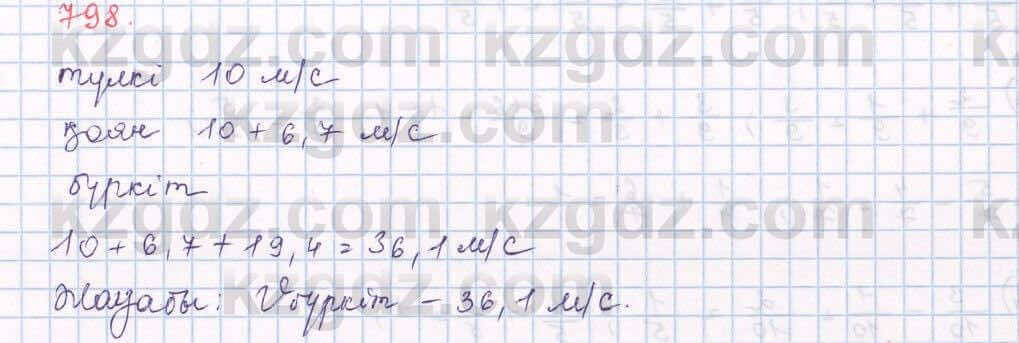 798.
түлкі 10 м/с
қоян 10 + 6,7 м/с
бүркіт
10 + 6,7 + 19,4 = 36,1 м/с
Жауабы: Vбүркіт – 36,1 м/с.
kzgdz.com kzgdz.com
kzgdz.com
kzgdz.com kzgdz.com
kzgdz.com